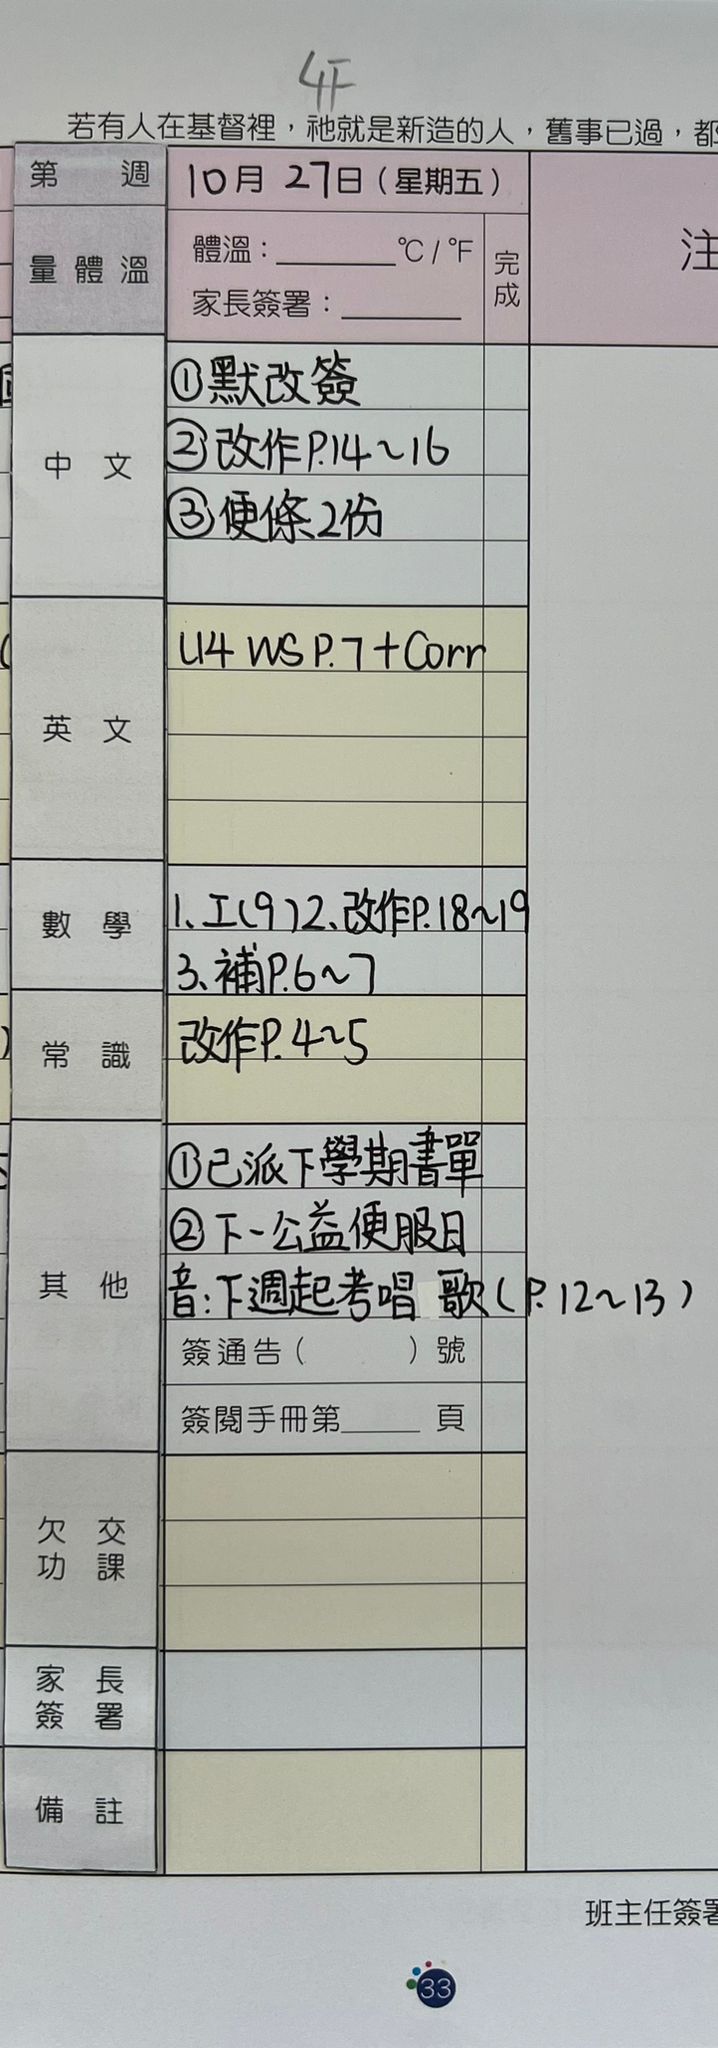 4F
若有人在基督裡，祂就是新造的人，舊事已過，都
第 週 10月 27日(星期五)
量體溫 體溫：______°C / °F 完成 注
家長簽署：______
中文
①默改簽
②改作P.14~16
③便條2份
英文
U4 WS P.7+Corr
數學
1、工(9) 2、改作P.18~19
3、補P.6~7
常識
改作P.4~5
其他
①已派下學期書單
②下一公益便服日
音:下週起考唱 歌(P.12~13)
簽通告( )號
簽閱手冊第____頁
欠交功課
家長簽署
備註
班主任簽署
33